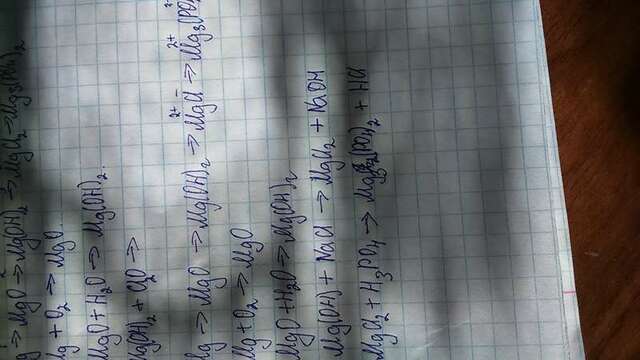 → MgO → Mg(OH)2 → MgCl2 → Mg3(PO4)2
Mg + O2 → MgO
MgO + H2O → Mg(OH)2.
Mg(OH)2 + →
2+ - 2+ 3-
Mg → MgO → Mg(OH)2 → MgCl → Mg3(PO
Mg + O2 → MgO
MgO + H2O → Mg(OH)2
Mg(OH) + NaCl → MgCl2 + NaOH
MgCl2 + H3PO4 → (PO4)2 + HCl